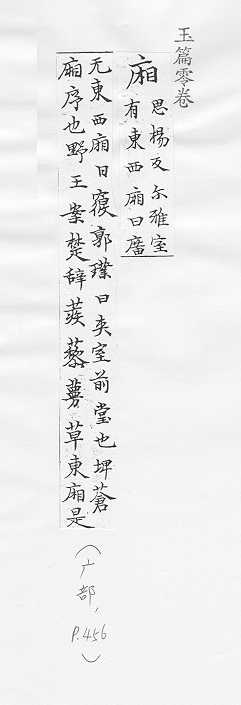 玉篇零卷
廂 思楊反尒雅室
有東西廂曰庿
无東西廂曰寑郭璞曰夾室前堂也埤蒼
廂序也野王案楚辭蒺藜蔓草東廂是
(广部, P.456)